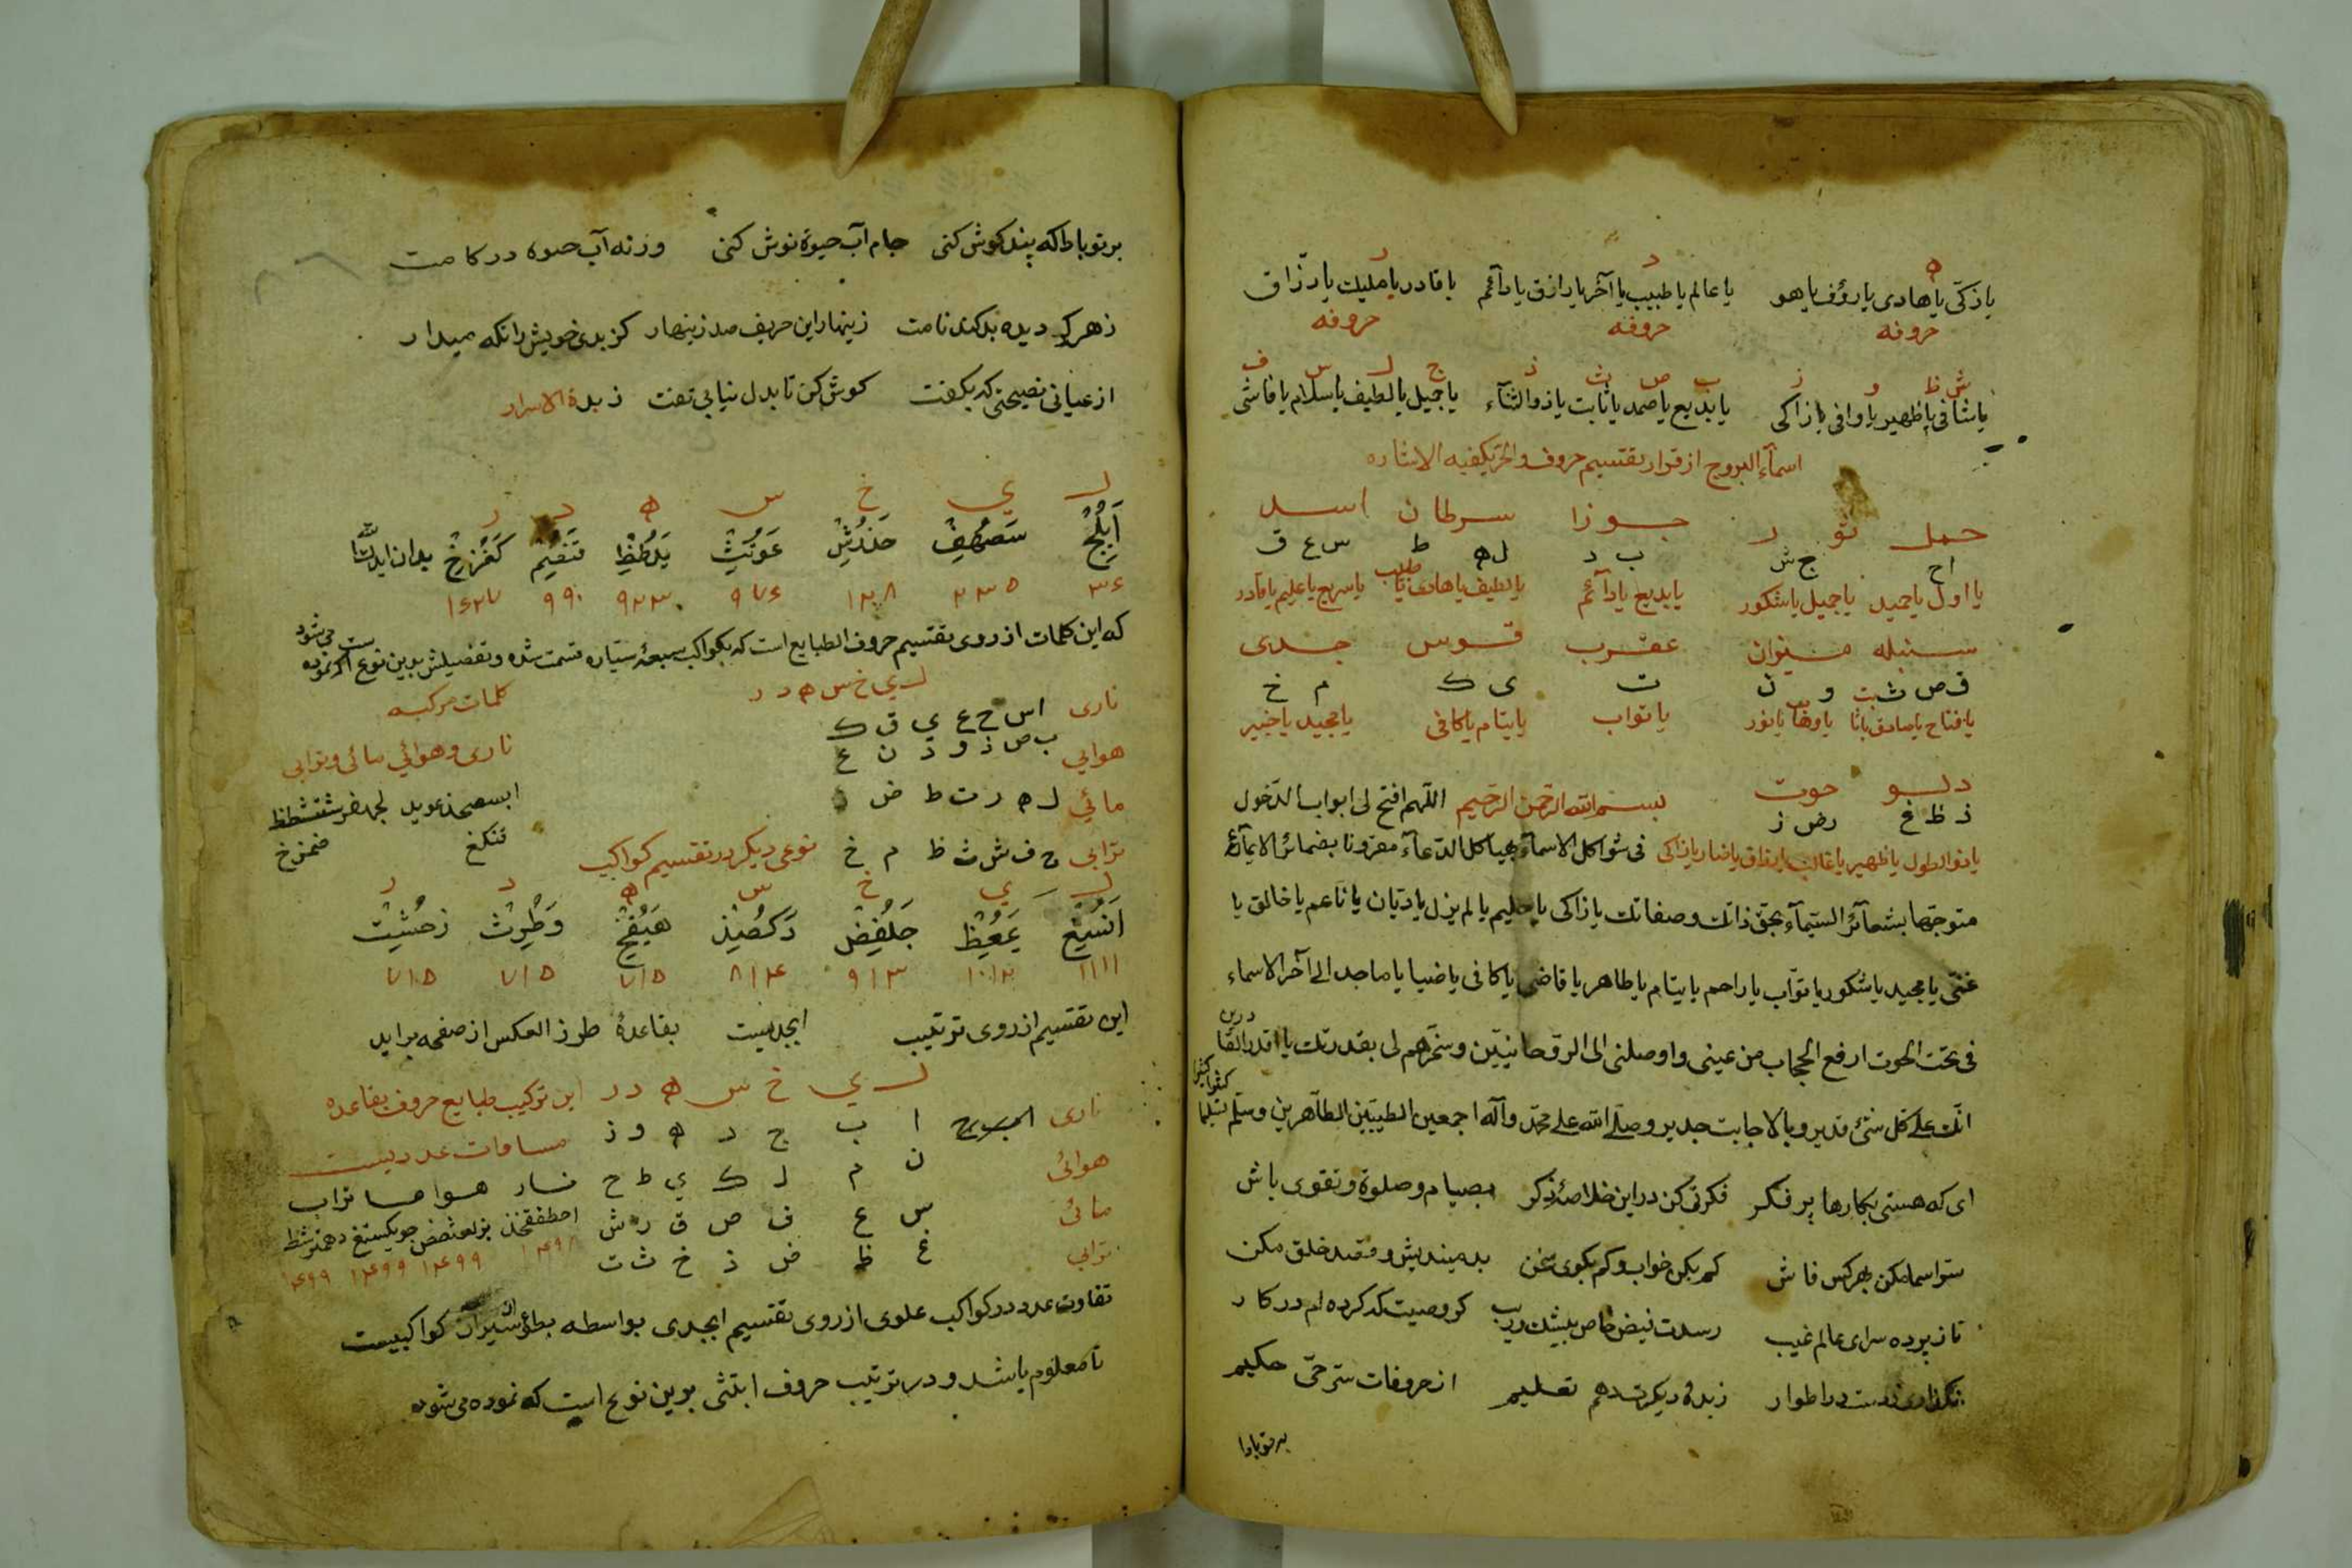 ه د ر
یا زکّی یا هادی یا رؤف یا هو یا عالم یا طبیب یا آخر یا رازق یا دآئم یا قادر یا ملیک یا رزّاق
حروفه حروفه حروفه
ش ظ و ز ب ص ث ذ ج ل س ف
یا شافی یا ظهیر یا وافی یا زاکی یا بدیع یا صمد یا ثابت یا ذوالثنآء یا جمیل یا لطیف یا سلام یا فاشی
اسمآء البروج از قرار تقسیم حروف والحر یکفیه الاشاره
حمل ثور جوزا سرطان اسد
اح ج ش ب د ل ه ط س ع ق
یا اول یا حمید یا جمیل یا شکور یا بدیع یا دآئم یا لطیف یا هادی یا طبیب یا سریع یا علیم یا قادر
سنبله میزان عقرب قوس جدی
ف ص ث و ن ت ی ک م خ
یا فتاح یا صادق یا ثابت یا وهاب یا نور یا تواب یا یتام یا کافی یا مجید یا خبیر
دلو حوت بسم الله الرّحمن الرّحیم اللّهم افتح لی ابواب الدّخول
ذ ظ غ ر ض ز
یا ذوالطول یا ظهیر یا غالب یا رزاق یا ضار یا زاکی فی شواکل الاسمآء هیاکل الدّعآء مقرونا بضمائر الایمآء
متوجّها بشعآئر السّیمآء بحق ذاتک وصفاتک یا زاکی یا حلیم یا لم یزل یا دیان یا ناعم یا خالق یا
غنّی یا مجید یا شکور یا توّاب یا راحم یا یتام یا طاهر یا قاضی یا کافی یا ضیا یا ماجد الی آخر الاسماء
فی تحت الحوت ارفع الحجاب من عینی واوصلنی الی الروحانیّین وسخّرهم لی بقدرتک یا اقدر القادرین
انّک علی کل شئ قدیر وبالاجابت جدیر وصلّی الله علی محمّد وآله اجمعین الطیبّین الطّاهرین وسلّم تسلیما کثیرا کثیرا
ای که هستی بکارها پر فکر فکرتی کن در این خلاصهٔ ذکر بصیام وصلوة وتقوی باش
سرّ اسما مکن بهر کس فاش کم بکن خواب وکم بکوی سخن بد میندیش وقصد خلق مکن
تا ز پرده سرای عالم غیب رسدت فیض خاص بیشک وریب کر وصیت که کرده ام در کار
نکذاری ز دست در اطوار زبدهٔ دیکرت دهم تعلیم از حروفات سرّ حّی حکیم
بر تو بادا
بر تو بادا که پند کوش کنی جام آب حیوة نوش کنی ورنه آب حیوة در کامت
زهر کردیده بد کند نامت زینهار این حریف صد زینهار کز بدی خویش را نکه میدار
از عیانی نصیحتی که بکفت کوش کن تا بدل نیابی تفت زبدة الاسرار
ل ي خ س ه د ر
اَبلُجْ سَصُهِفْ حَذدُشْ عَوَثْ یَلُطظْ تَنضِمْ کَغْرزخْ بدان ایدک الله
۳۶ ۲۳۵ ۱۲۰۸ ۹۷۶ ۹۲۳۰ ۹۹۰ ۱۶۲۷
که این کلمات از روی تقسیم حروف الطبایع است که بکواکب سبعهٔ سیّاره قسمت شده وتفضیلش بدین نوع اکر نموده می شود
ل ي خ س ه د ر کلمات مرکبه
ناری ا س ح ع ي ق ک
هوایي ب ص ذ و د ن غ ناری وهوائي مائی وترابی
مائي ل ه ر ت ط ض
ترابي ج ف ش ث ظ م خ نوعی دیکر در تقسیم کواکب
ل ي خ س ه د ر
اَنسُغْ جَلفِضْ دَکصُذْ هَیُفخْ وَطرِثْ زحشِتْ
۱۱۱۱ ۱۰۱۲ ۹۱۳ ۸۱۴ ۷۱۵ ۷۱۵ ۷۱۵
این تقسیم از روی ترتیب ابجدیست بقاعدهٔ طرز العکس از صفحه براید
ل ي خ س ه د ر این ترکیب طبایع حروف بقاعده
ناری ا ب ج د ه و ز مساوات عددیست
هوائی ن م ل ک ي ط ح نار هوا ما تراب
مائی س ع ف ص ق ر ش
ترابي غ ظ ض ذ خ ث ت
۱۴۹۸ ۱۴۹۹ ۱۴۹۹ ۱۴۹۹
تفاوت عدد در کواکب علوی از روی تقسیم ابجدی بواسطه بطؤ سیران کواکبیست
تا معلوم باشد ودر ترتیب حروف ابتثی بدین نوع است که نموده می شود